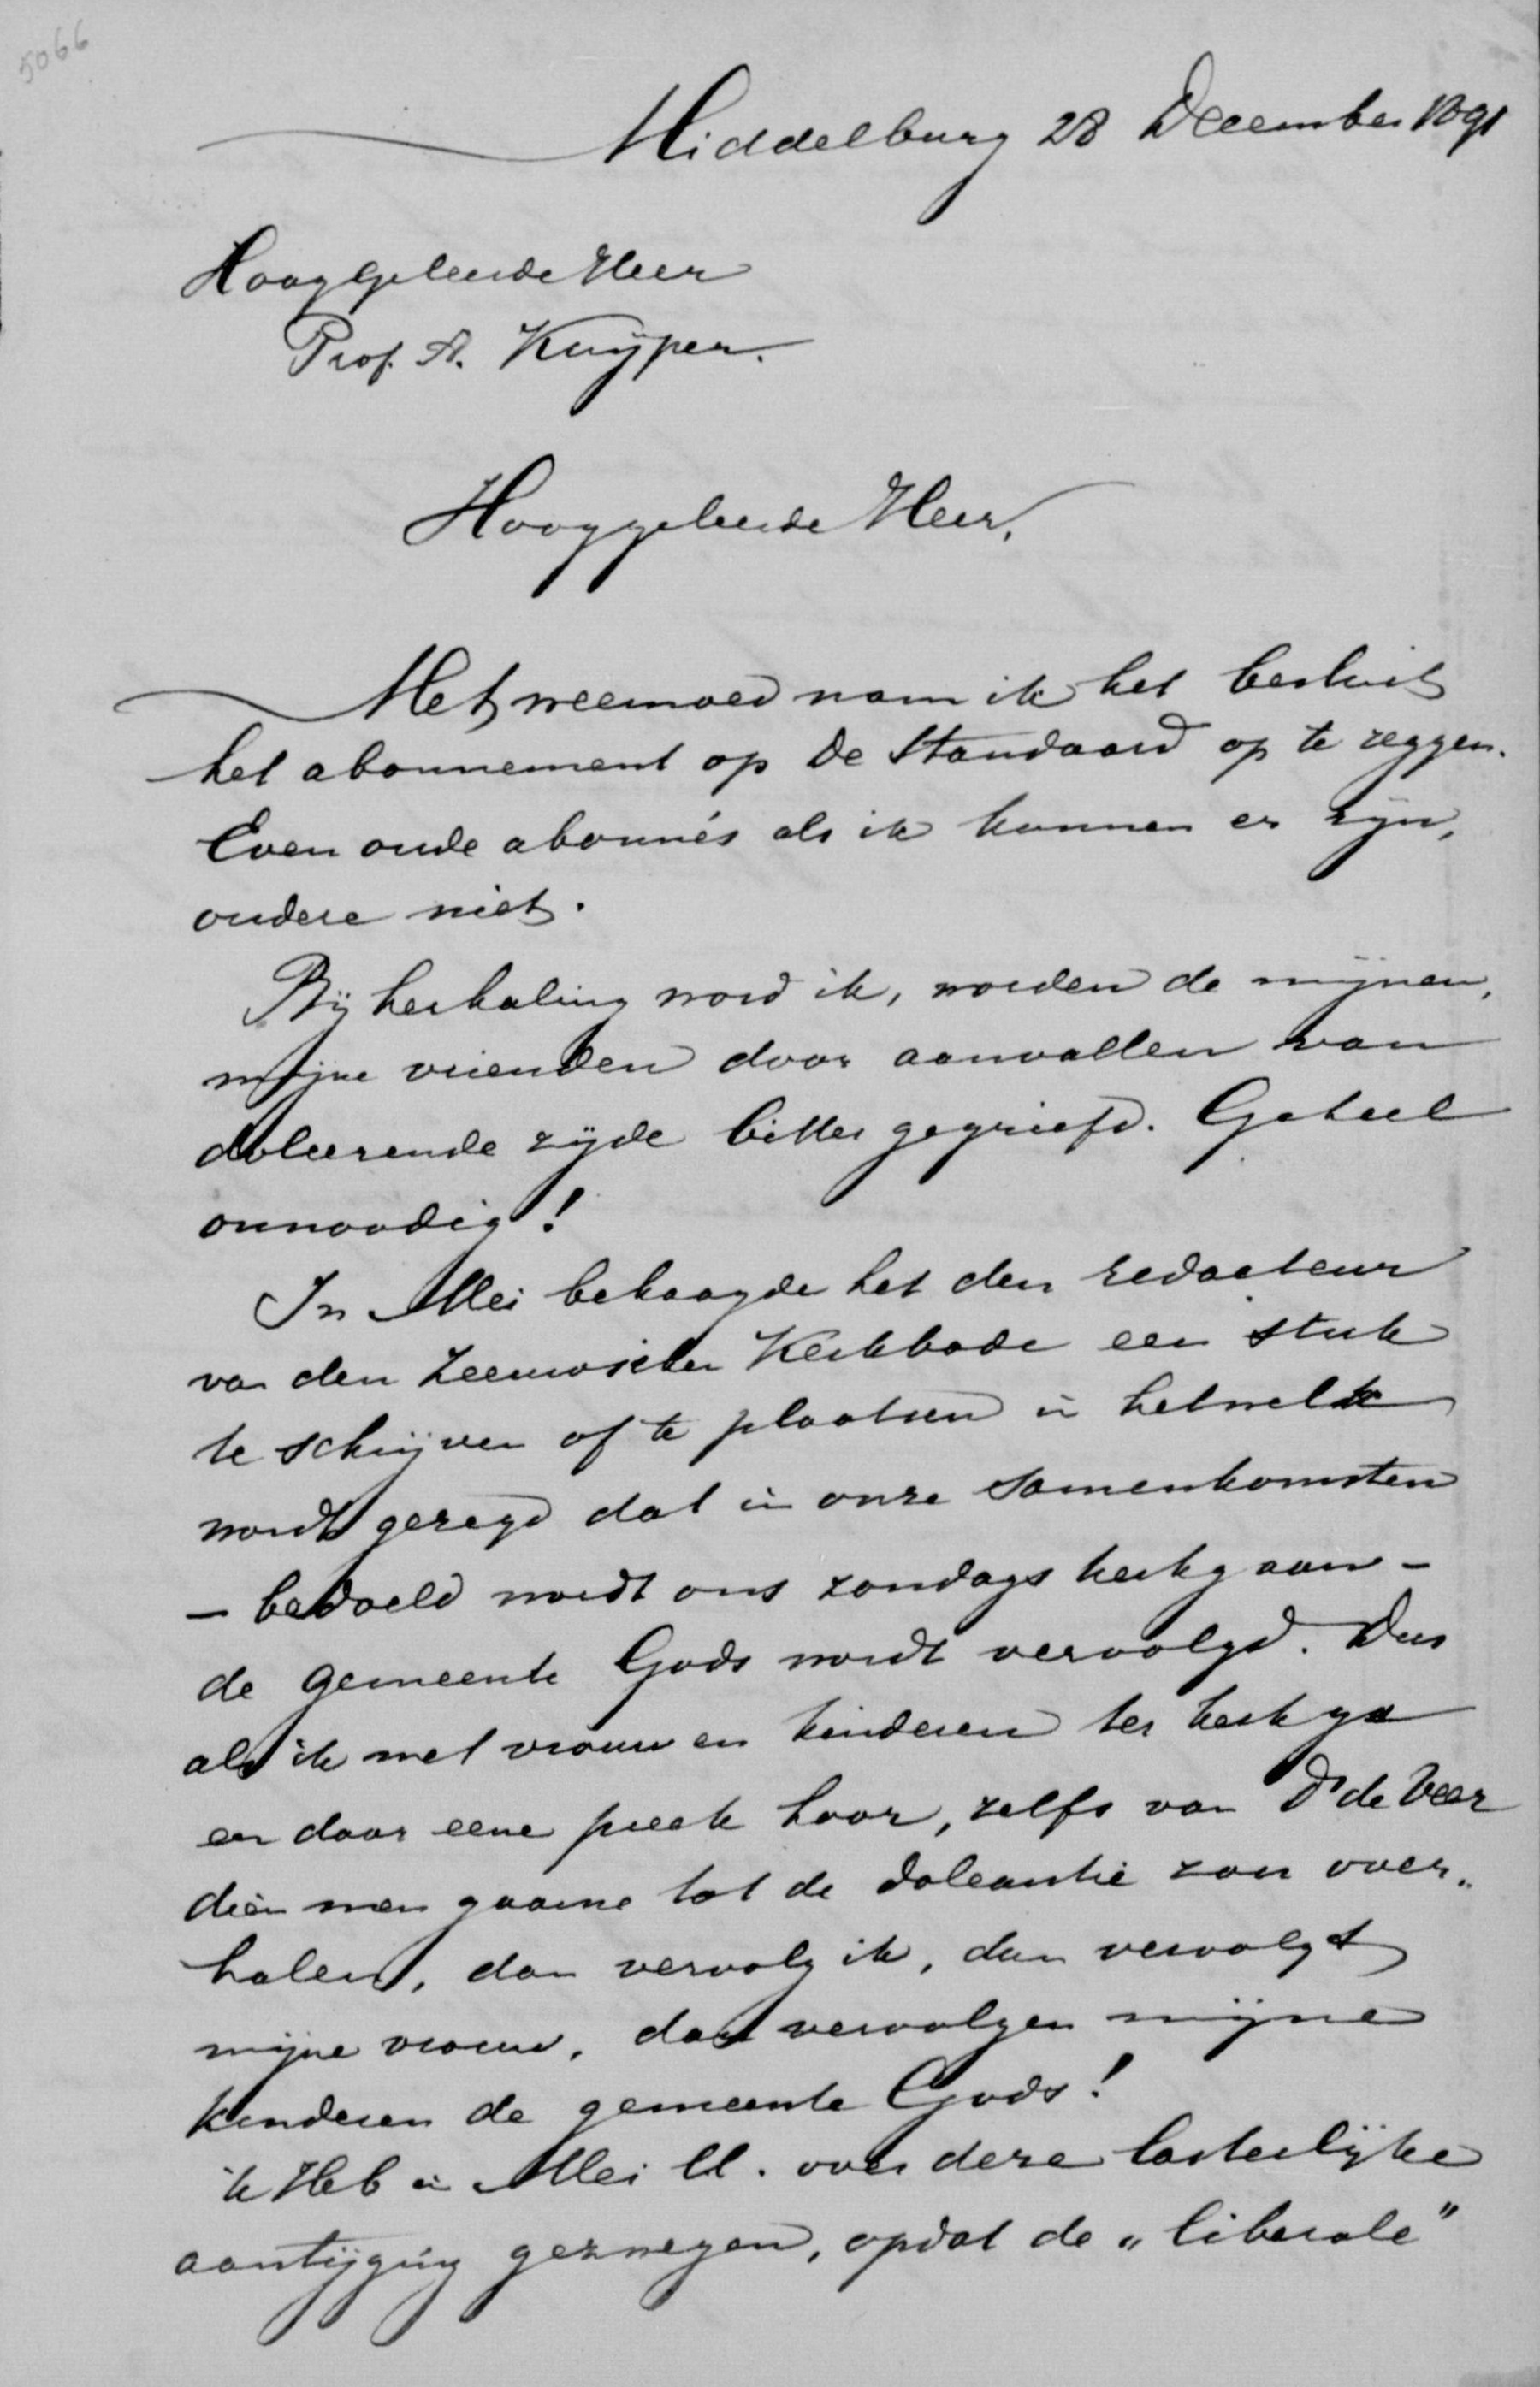 5066
Middelburg 28 December 1891
Hooggeleerde Heer
Prof. A. Kuijper.
Hooggeleerde Heer,
Met weemoed nam ik het besluit
het abonnement op de Standaard op te zeggen.
Even oude abonnés als ik kunnen er zijn,
oudere niet.
Bij herhaling word ik, worden de mijnen,
mijne vrienden door aanvallen van
doleerende zijde bitter gegriefd. Geheel
onnoodig!
In Mei behaagde het den redacteur
van den Zeeuwschen Kerkbode een stuk
te schrijven of te plaatsen in hetwelk
wordt gezegd dat in onze samenkomsten
- bedoeld wordt ons zondags kerkgaan -
de gemeente Gods wordt vervolgd. Dus
als ik met vrouw en kinderen ter kerk ga
en daar eene preek hoor, zelfs van Ds de Veer
dien men gaarne tot de doleantie zou over„
halen, dan vervolg ik, dan vervolgt
mijne vrouw, dan vervolgen mijne
kinderen de gemeente Gods!
ik Heb in Mei ll. over deze lasterlijke
aantijging gezwegen, opdat de „liberale"